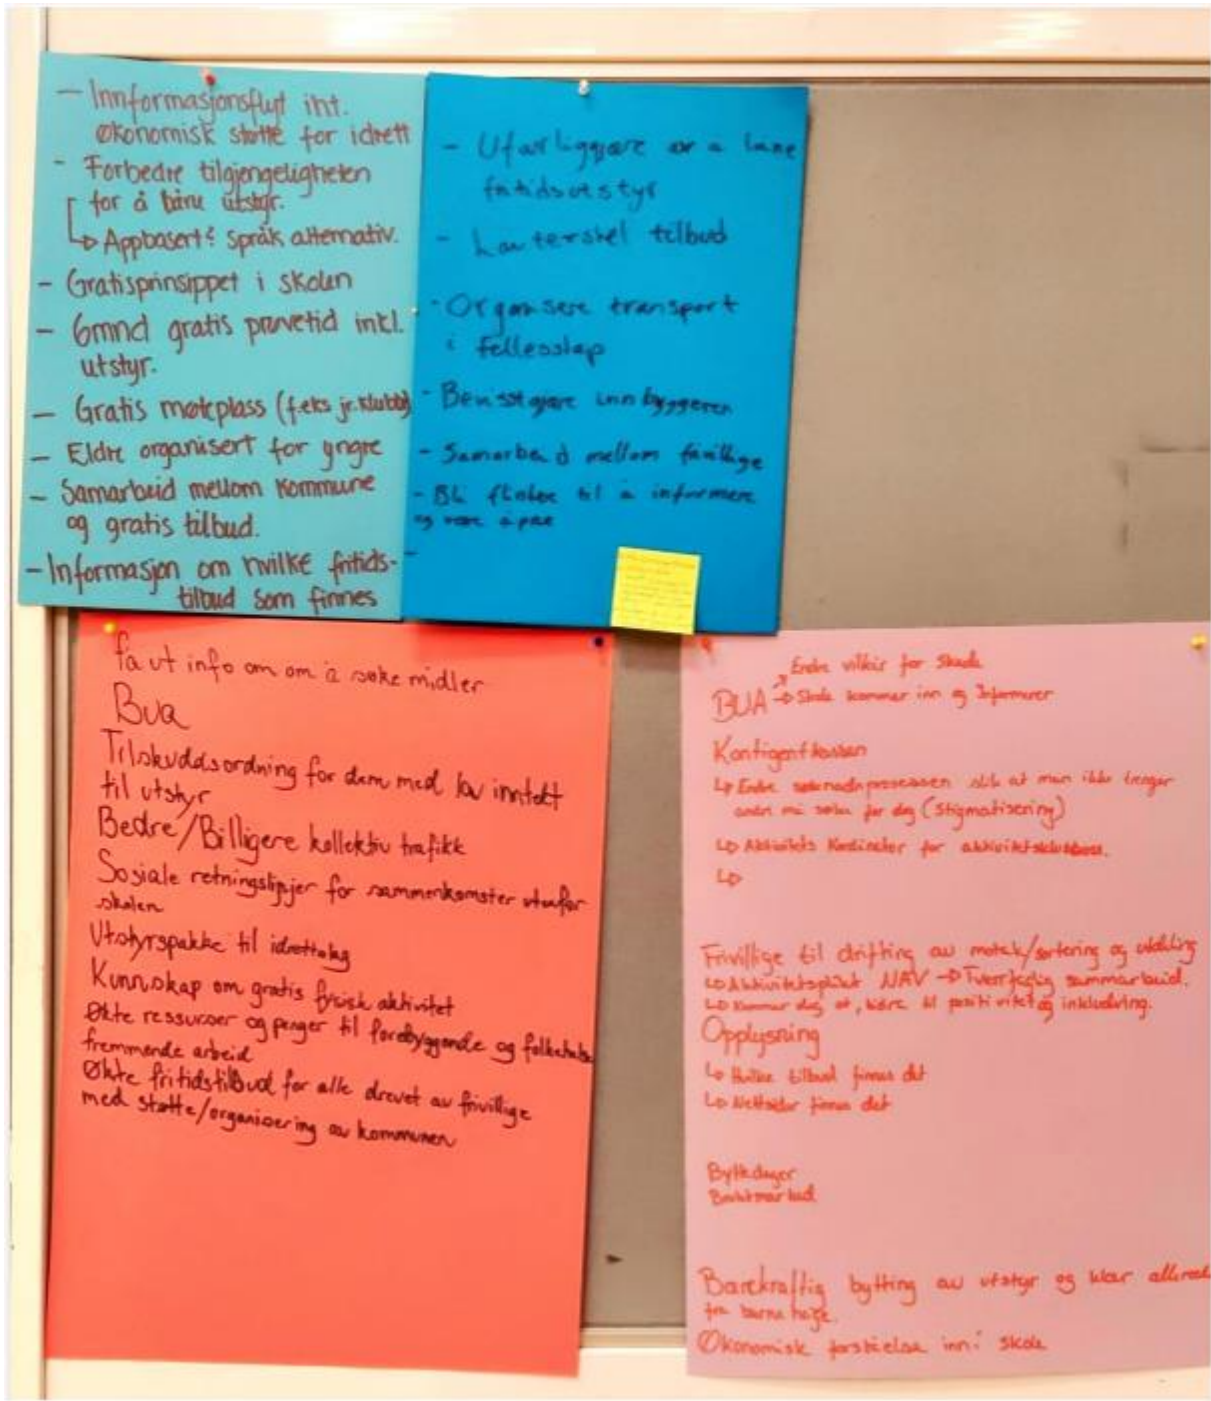 - Innformasjonsflyt iht.
økonomisk støtte for idrett
- Forbedre tilgjengeligheten
for å låne utstyr.
↳ Appbasert? språk alternativ.
- Gratisprinsippet i skolen
- 6mnd gratis prøvetid inkl.
utstyr.
- Gratis møteplass (f.eks jr.klubb)
- Eldre organisert for yngre
- Samarbeid mellom kommune
og gratis tilbud.
- Informasjon om hvilke fritids-
tilbud som finnes
- Ufarliggjøre av å låne
fritidsutstyr
- Lavterskel tilbud
- Organsere transport
i fellesskap
- Bevisstgjøre innbyggeren
- Samarbeid mellom frivillige
- Bli flinkere til å informere
og være åpne
-
få ut info om om å søke midler
Bua
Tilskuddsordning for dem med lav inntekt
til utstyr
Bedre/Billigere kollektiv trafikk
Sosiale retningslinjer for sammenkomster utenfor
skolen
Utstyrspakke til idrettslag
Kunnskap om gratis fysisk aktivitet
Økte ressurser og penger til forebyggende og folkehelse
fremmende arbeid
Økte fritidstilbud for alle drevet av frivillige
med støtte/organisering av kommunen
Endre vilkår for skade
BUA → Skole kommer inn og Informerer
Kontigentkassen
↳ Endre søknadsprosessen slik at man ikke trenger
andre må søke for deg (Stigmatisering)
↳ Aktivitets Kordinator for
↳
Frivillige til drifting av motak/sortering og utdeling
↳ Aktivitetsplikt NAV → Tverrfaglig sammarbeid.
↳ Kommer deg ut, bidre til positivitet og inkludring.
Opplysning
↳ Hvilke tilbud finnes det
↳ Nettsider finnes det
Byttedager
Bruktmarked
Bærekraftig bytting av utstyr og klær allerede
fra barnehage.
Økonomisk forståelse inn i skole